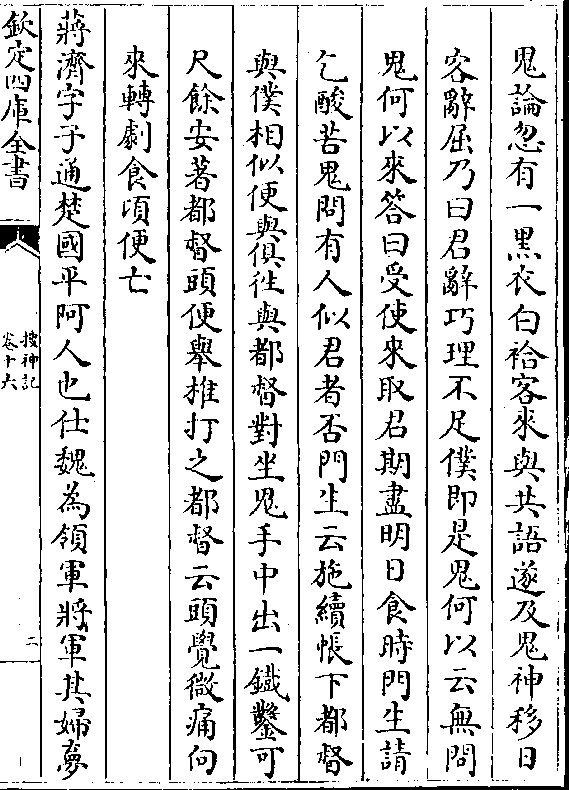 鬼論忽有一黒衣白袷客來與共語遂及鬼神移日
客辭屈乃曰君辭巧理不足僕即是鬼何以云無問
鬼何以來答曰受使來取君期盡明日食時門生請
乞酸苦鬼問有人似君者否門生云施續帳下都督
與僕相似便與俱徃與都督對坐鬼手中出一鐡鑿可
尺餘安著都督頭便舉推打之都督云頭覺微痛向
來轉劇食頃便亡
蔣濟字子通楚國平阿人也仕魏為領軍將軍其婦夢
欽定四庫全書
搜神記
卷十六
二